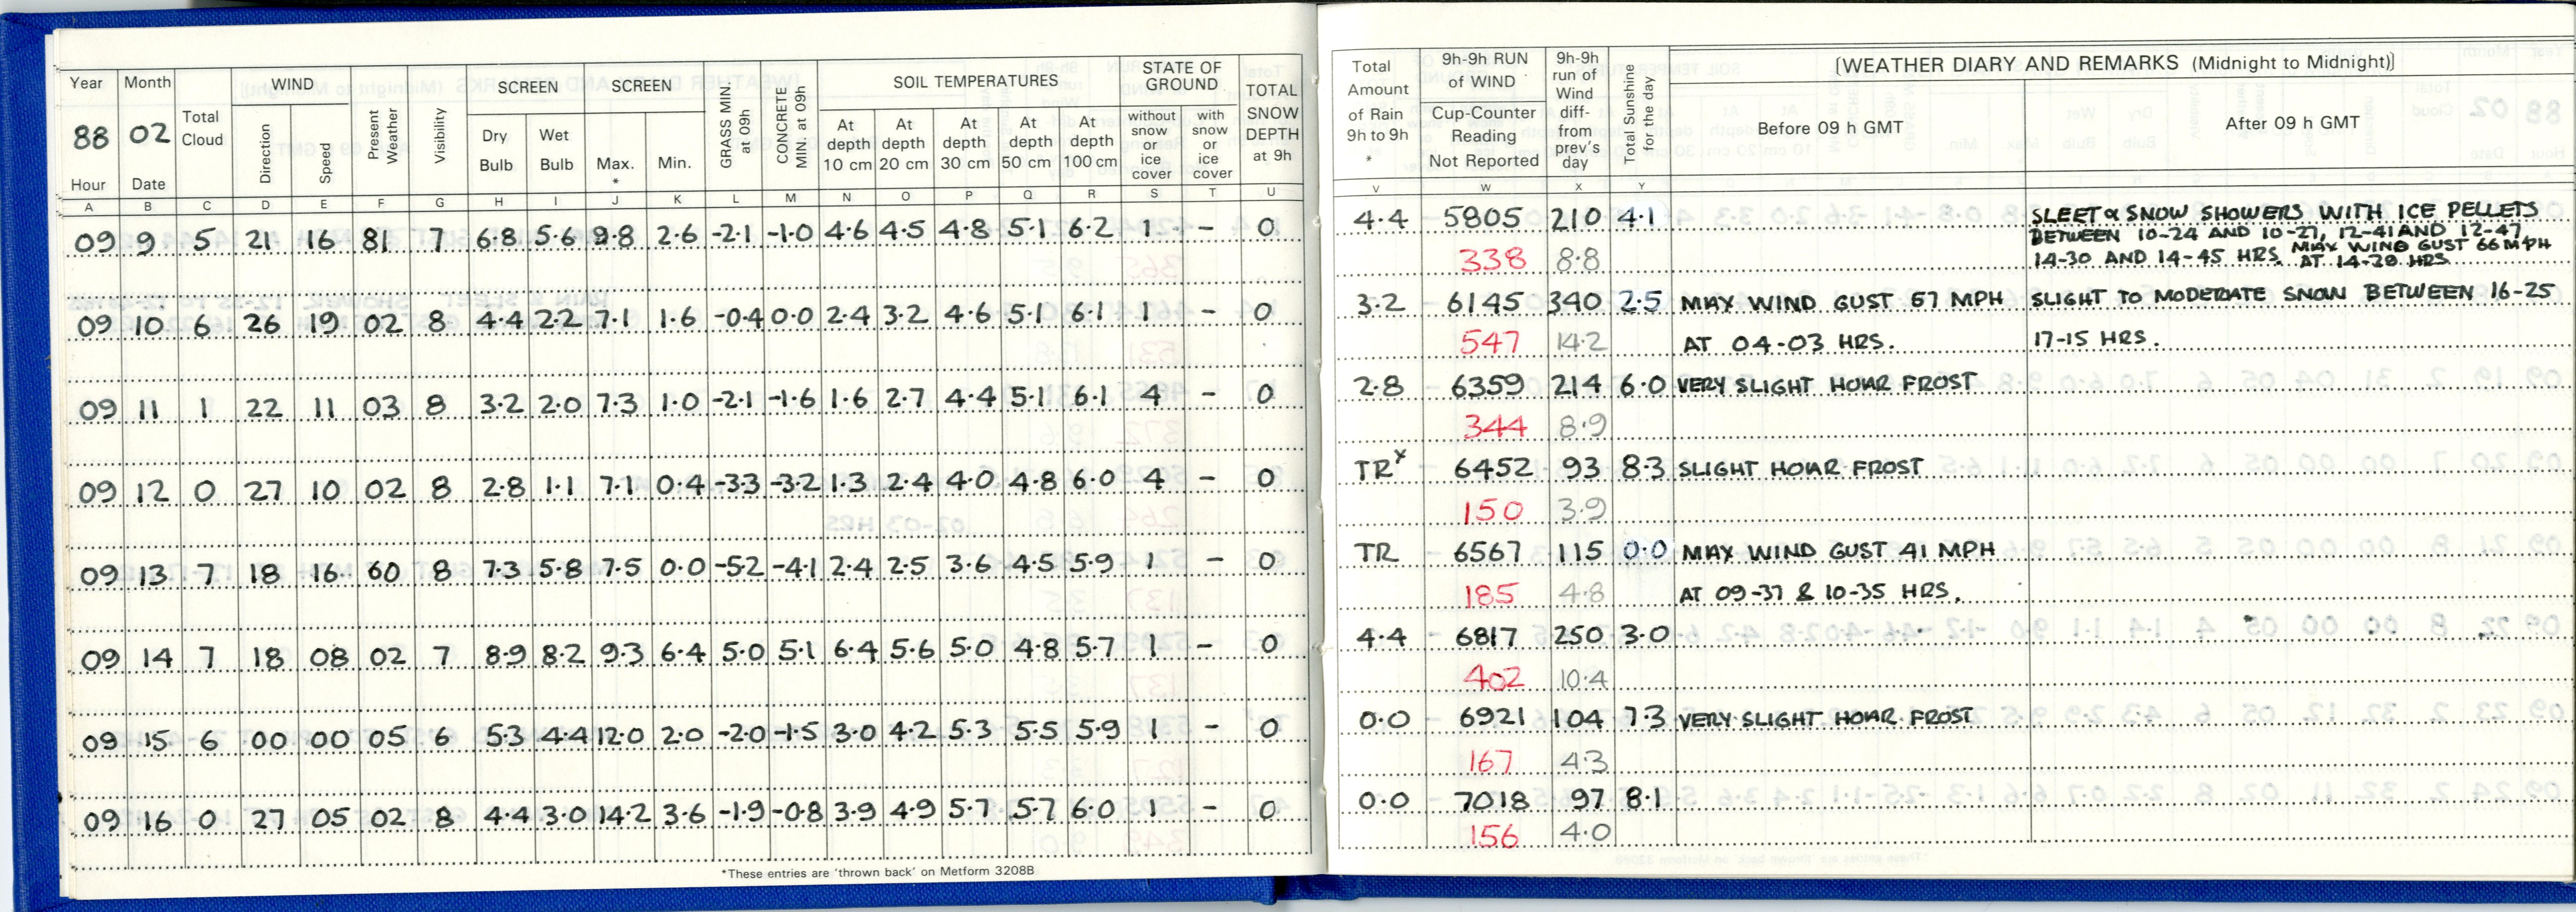 Year Month Total Cloud WIND Present Weather Visibility SCREEN SCREEN GRASS MIN. at 09h CONCRETE MIN. at 09h SOIL TEMPERATURES STATE OF GROUND TOTAL SNOW DEPTH at 9h
88 02 Direction Speed Dry Bulb Wet Bulb Max. * Min. At depth 10 cm At depth 20 cm At depth 30 cm At depth 50 cm At depth 100 cm without snow or ice cover with snow or ice cover
Hour Date
A B C D E F G H I J K L M N O P Q R S T U
09 9 5 21 16 81 7 6.8 5.6 9.8 2.6 -2.1 -1.0 4.6 4.5 4.8 5.1 6.2 1 - 0
09 10 6 26 19 02 8 4.4 2.2 7.1 1.6 -0.4 0.0 2.4 3.2 4.6 5.1 6.1 1 - 0
09 11 1 22 11 03 8 3.2 2.0 7.3 1.0 -2.1 -1.6 1.6 2.7 4.4 5.1 6.1 4 - 0
09 12 0 27 10 02 8 2.8 1.1 7.1 0.4 -3.3 -3.2 1.3 2.4 4.0 4.8 6.0 4 - 0
09 13 7 18 16 60 8 7.3 5.8 7.5 0.0 -5.2 -4.1 2.4 2.5 3.6 4.5 5.9 1 - 0
09 14 7 18 08 02 7 8.9 8.2 9.3 6.4 5.0 5.1 6.4 5.6 5.0 4.8 5.7 1 - 0
09 15 6 00 00 05 6 5.3 4.4 12.0 2.0 -2.0 -1.5 3.0 4.2 5.3 5.5 5.9 1 - 0
09 16 0 27 05 02 8 4.4 3.0 14.2 3.6 -1.9 -0.8 3.9 4.9 5.7 5.7 6.0 1 - 0
*These entries are 'thrown back' on Metform 3208B
Total Amount of Rain 9h to 9h * 9h-9h RUN of WIND 9h-9h run of Wind diff- from prev's day Total Sunshine for the day [WEATHER DIARY AND REMARKS (Midnight to Midnight)]
Cup-Counter Reading Not Reported Before 09 h GMT After 09 h GMT
V W X Y
4.4 5805 210 4.1 SLEET & SNOW SHOWERS WITH ICE PELLETS
BETWEEN 10-24 AND 10-27, 12-41 AND 12-47
338 8.8 14-30 AND 14-45 HRS. MAX WIND GUST 66 MPH AT 14-28 HRS
3.2 6145 340 2.5 MAX WIND GUST 57 MPH SLIGHT TO MODERATE SNOW BETWEEN 16-25
547 14.2 AT 04-03 HRS. 17-15 HRS.
2.8 6359 214 6.0 VERY SLIGHT HOAR FROST
344 8.9
TRx 6452 93 8.3 SLIGHT HOAR FROST
150 3.9
TR 6567 115 0.0 MAX WIND GUST 41 MPH
185 4.8 AT 09-37 & 10-35 HRS.
4.4 6817 250 3.0
402 10.4
0.0 6921 104 7.3 VERY SLIGHT HOAR FROST
167 4.3
0.0 7018 97 8.1
156 4.0